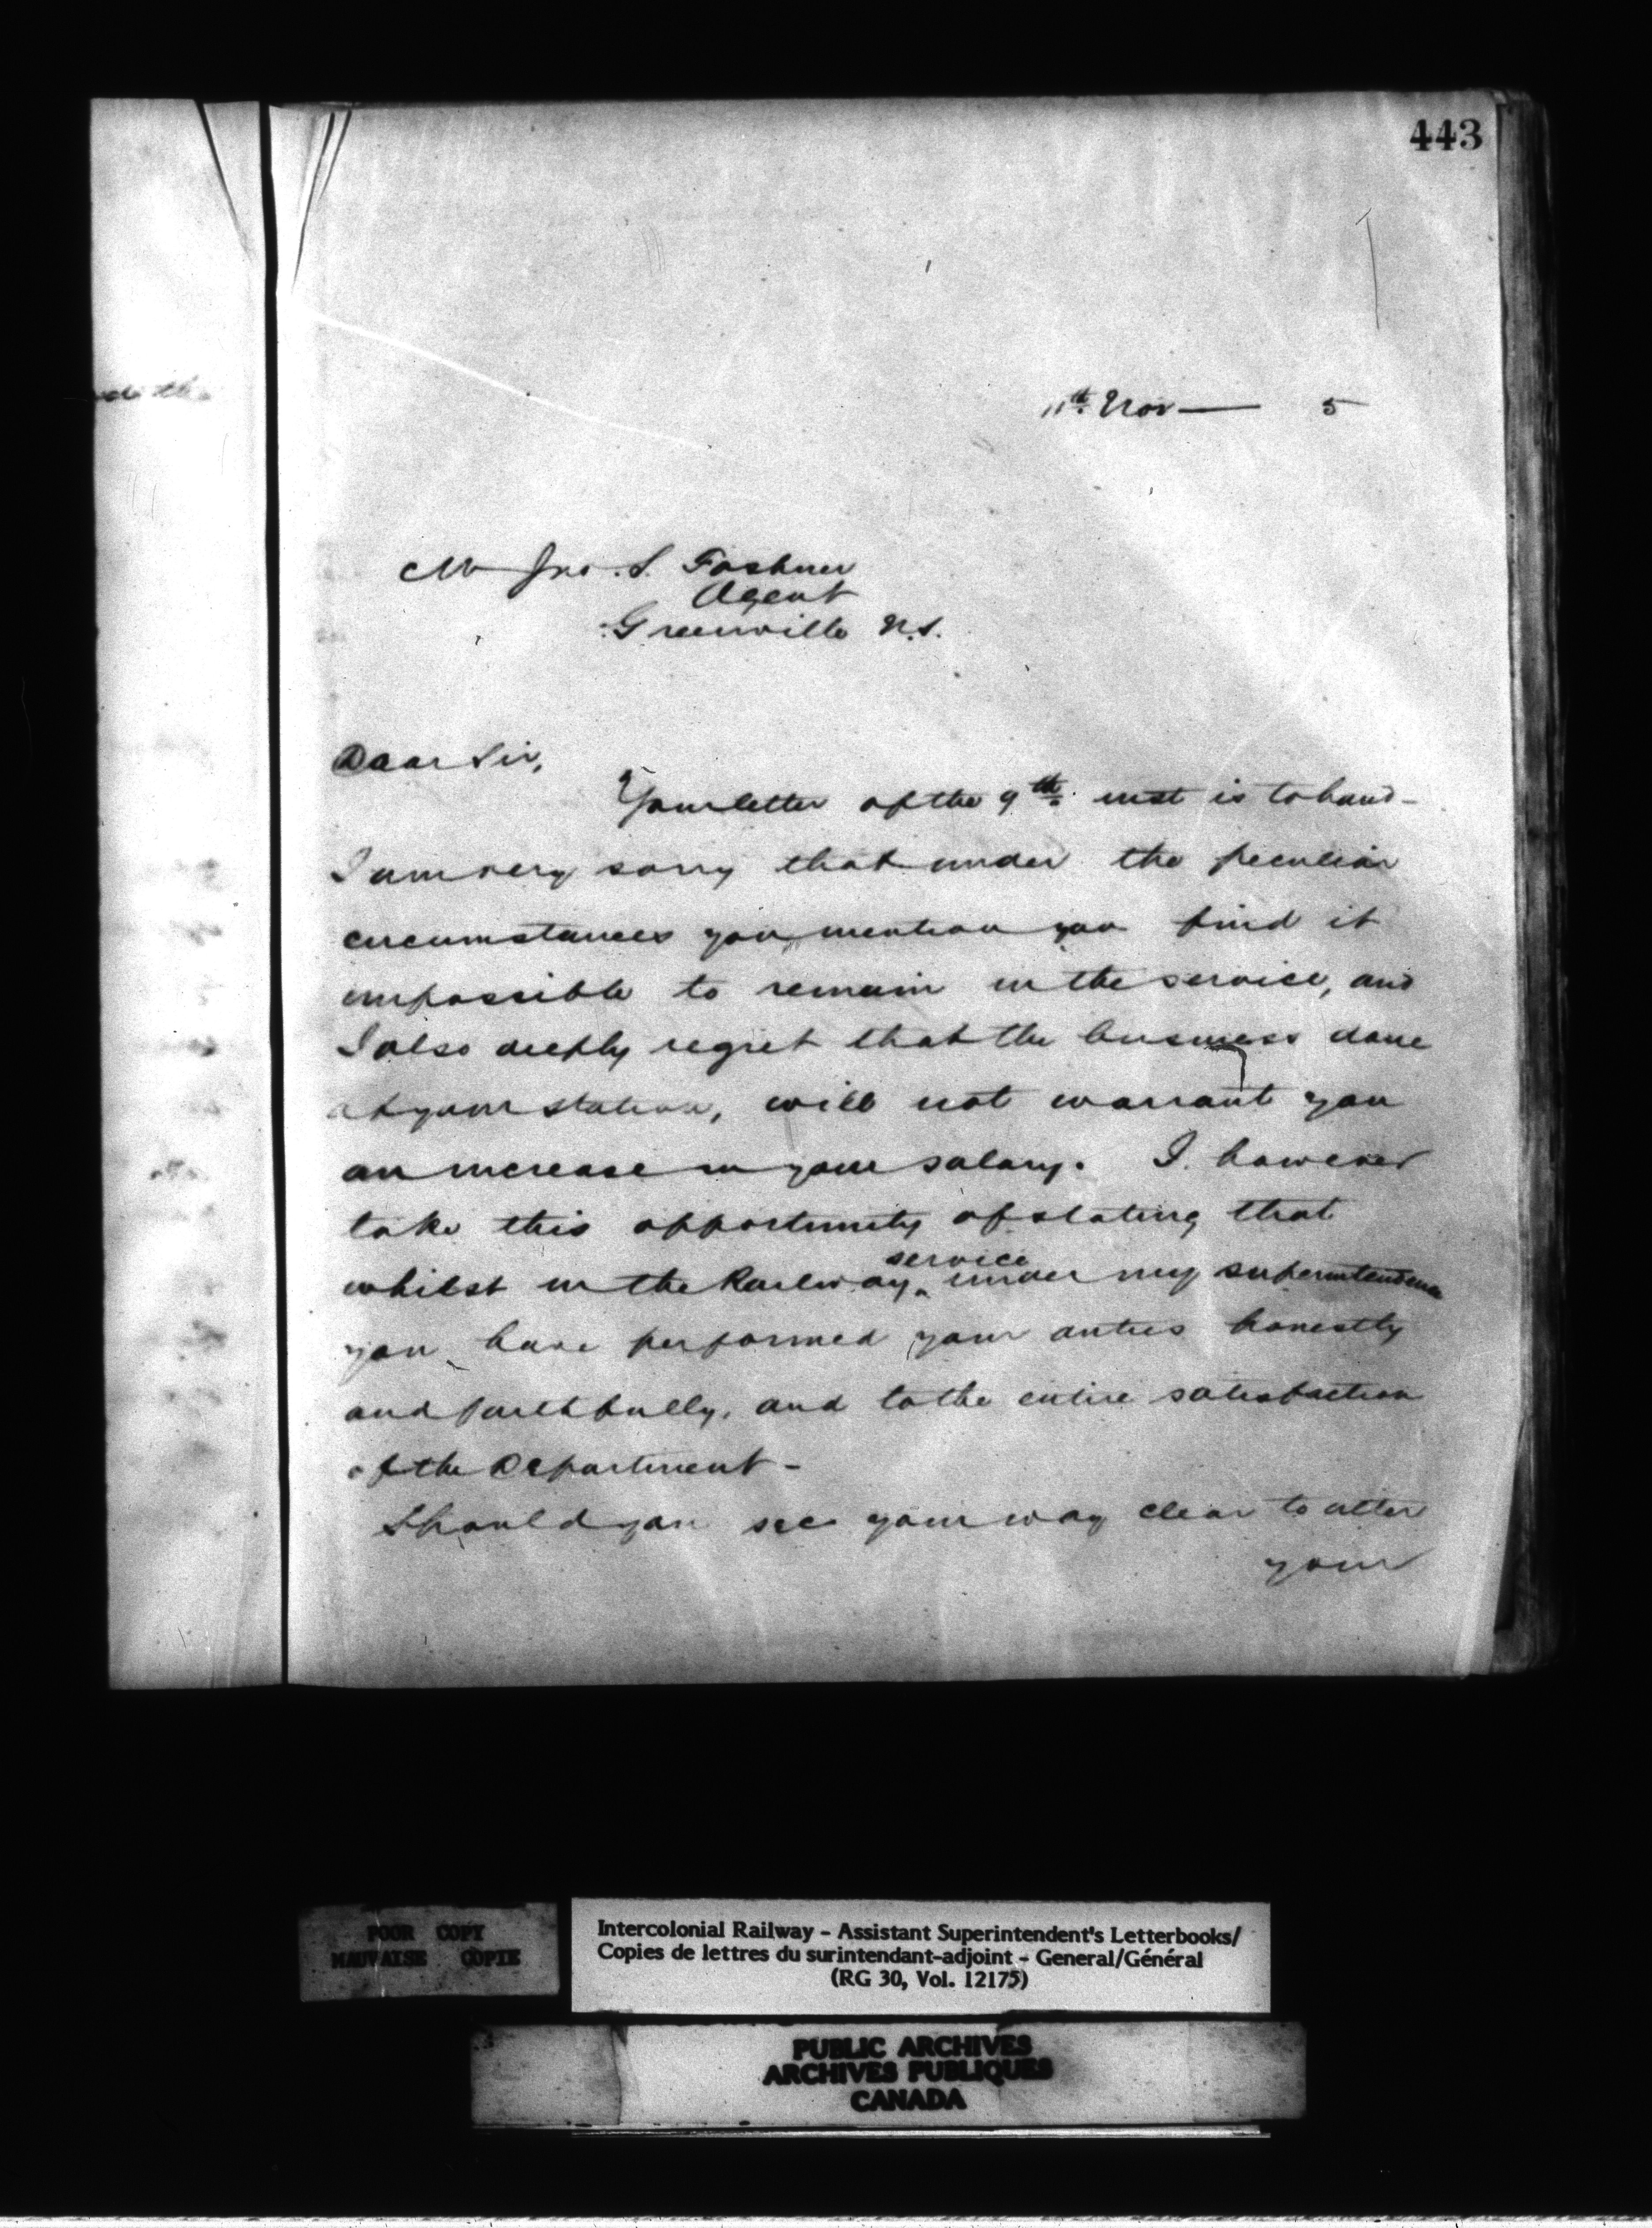 443
11th Nov — 5
Mr Jno. S. Foshner
Agent
Greenville N.S.
Dear Sir,
Your letter of the 9th inst is to hand -
I am very sorry that under the peculiar
circumstances you mention you find it
impossible to remain in the service, and
I also deeply regret that the business done
at your station, will not warrant you
an increase in your salary. I however
take this opportunity of stating that
service
whilst in the Railway ‸ under my superintendence
you have performed your duties honestly
and faithfully, and to the entire satisfaction
of the Department -
Should you see your way clear to alter
your
POOR COPY
MAUVAISE COPIE
Intercolonial Railway - Assistant Superintendent's Letterbooks/
Copies de lettres du surintendant-adjoint - General/Général
(RG 30, Vol. 12175)
PUBLIC ARCHIVES
ARCHIVES PUBLIQUES
CANADA